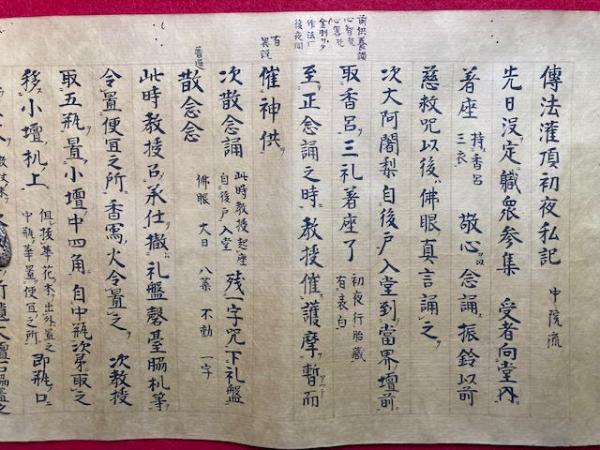 傳法灌頂初夜私記 中院流
先日没定職衆参集 受者向堂内
著座 持香呂 三衣 敬心念誦振鈴以前
慈救咒以後佛眼真言誦之
次大阿闍梨自後戸入堂到當界壇前
取香呂三礼著座了 初夜行胎藏 有表白
至正念誦之時教授催護摩暫而
催神供
次散念誦 此時教授起座 自後戸入堂 佛眼 大日 八葉 不動 一字 残一字咒下礼盤
普通
散念念
此時教授召承仕撤礼盤磬臺脇机等
令置便宜之所香寫火令置之 次教授
取五瓶置小壇中四角自中瓶次第取之
移小壇机上 俱拔華花木出外置之 中瓶華置便宜之所 即瓶口